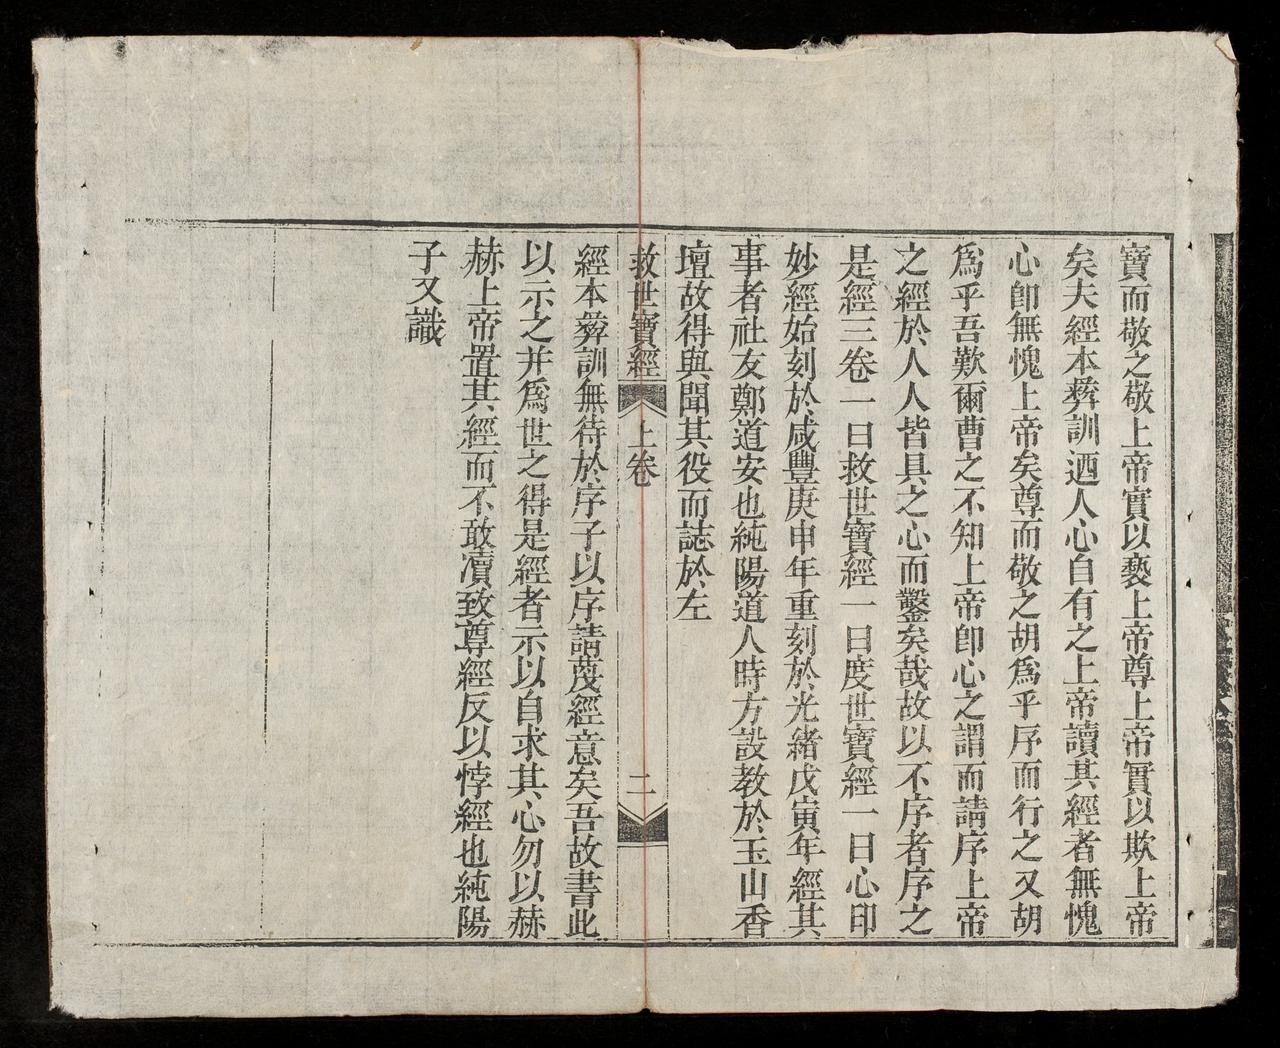 寶而敬之敬上帝實以褻上帝尊上帝實以欺上帝
矣夫經本彝訓迺人心自有之上帝讀其經者無愧
心卽無愧上帝矣尊而敬之胡爲乎序而行之又胡
爲乎吾歎爾曹之不知上帝卽心之謂而請序上帝
之經於人人皆具之心而鑿矣哉故以不序者序之
是經三卷一曰救世寶經一曰度世寶經一曰心印
妙經始刻於咸豐庚申年重刻於光緒戊寅年經其
事者社友鄭道安也純陽道人時方設教於玉山香
壇故得與聞其役而誌於左
救世寶經 上卷 二
經本彝訓無待於序子以序請蔑經意矣吾故書此
以示之并爲世之得是經者示以自求其心勿以赫
赫上帝置其經而不敢瀆致尊經反以悖經也純陽
子又識